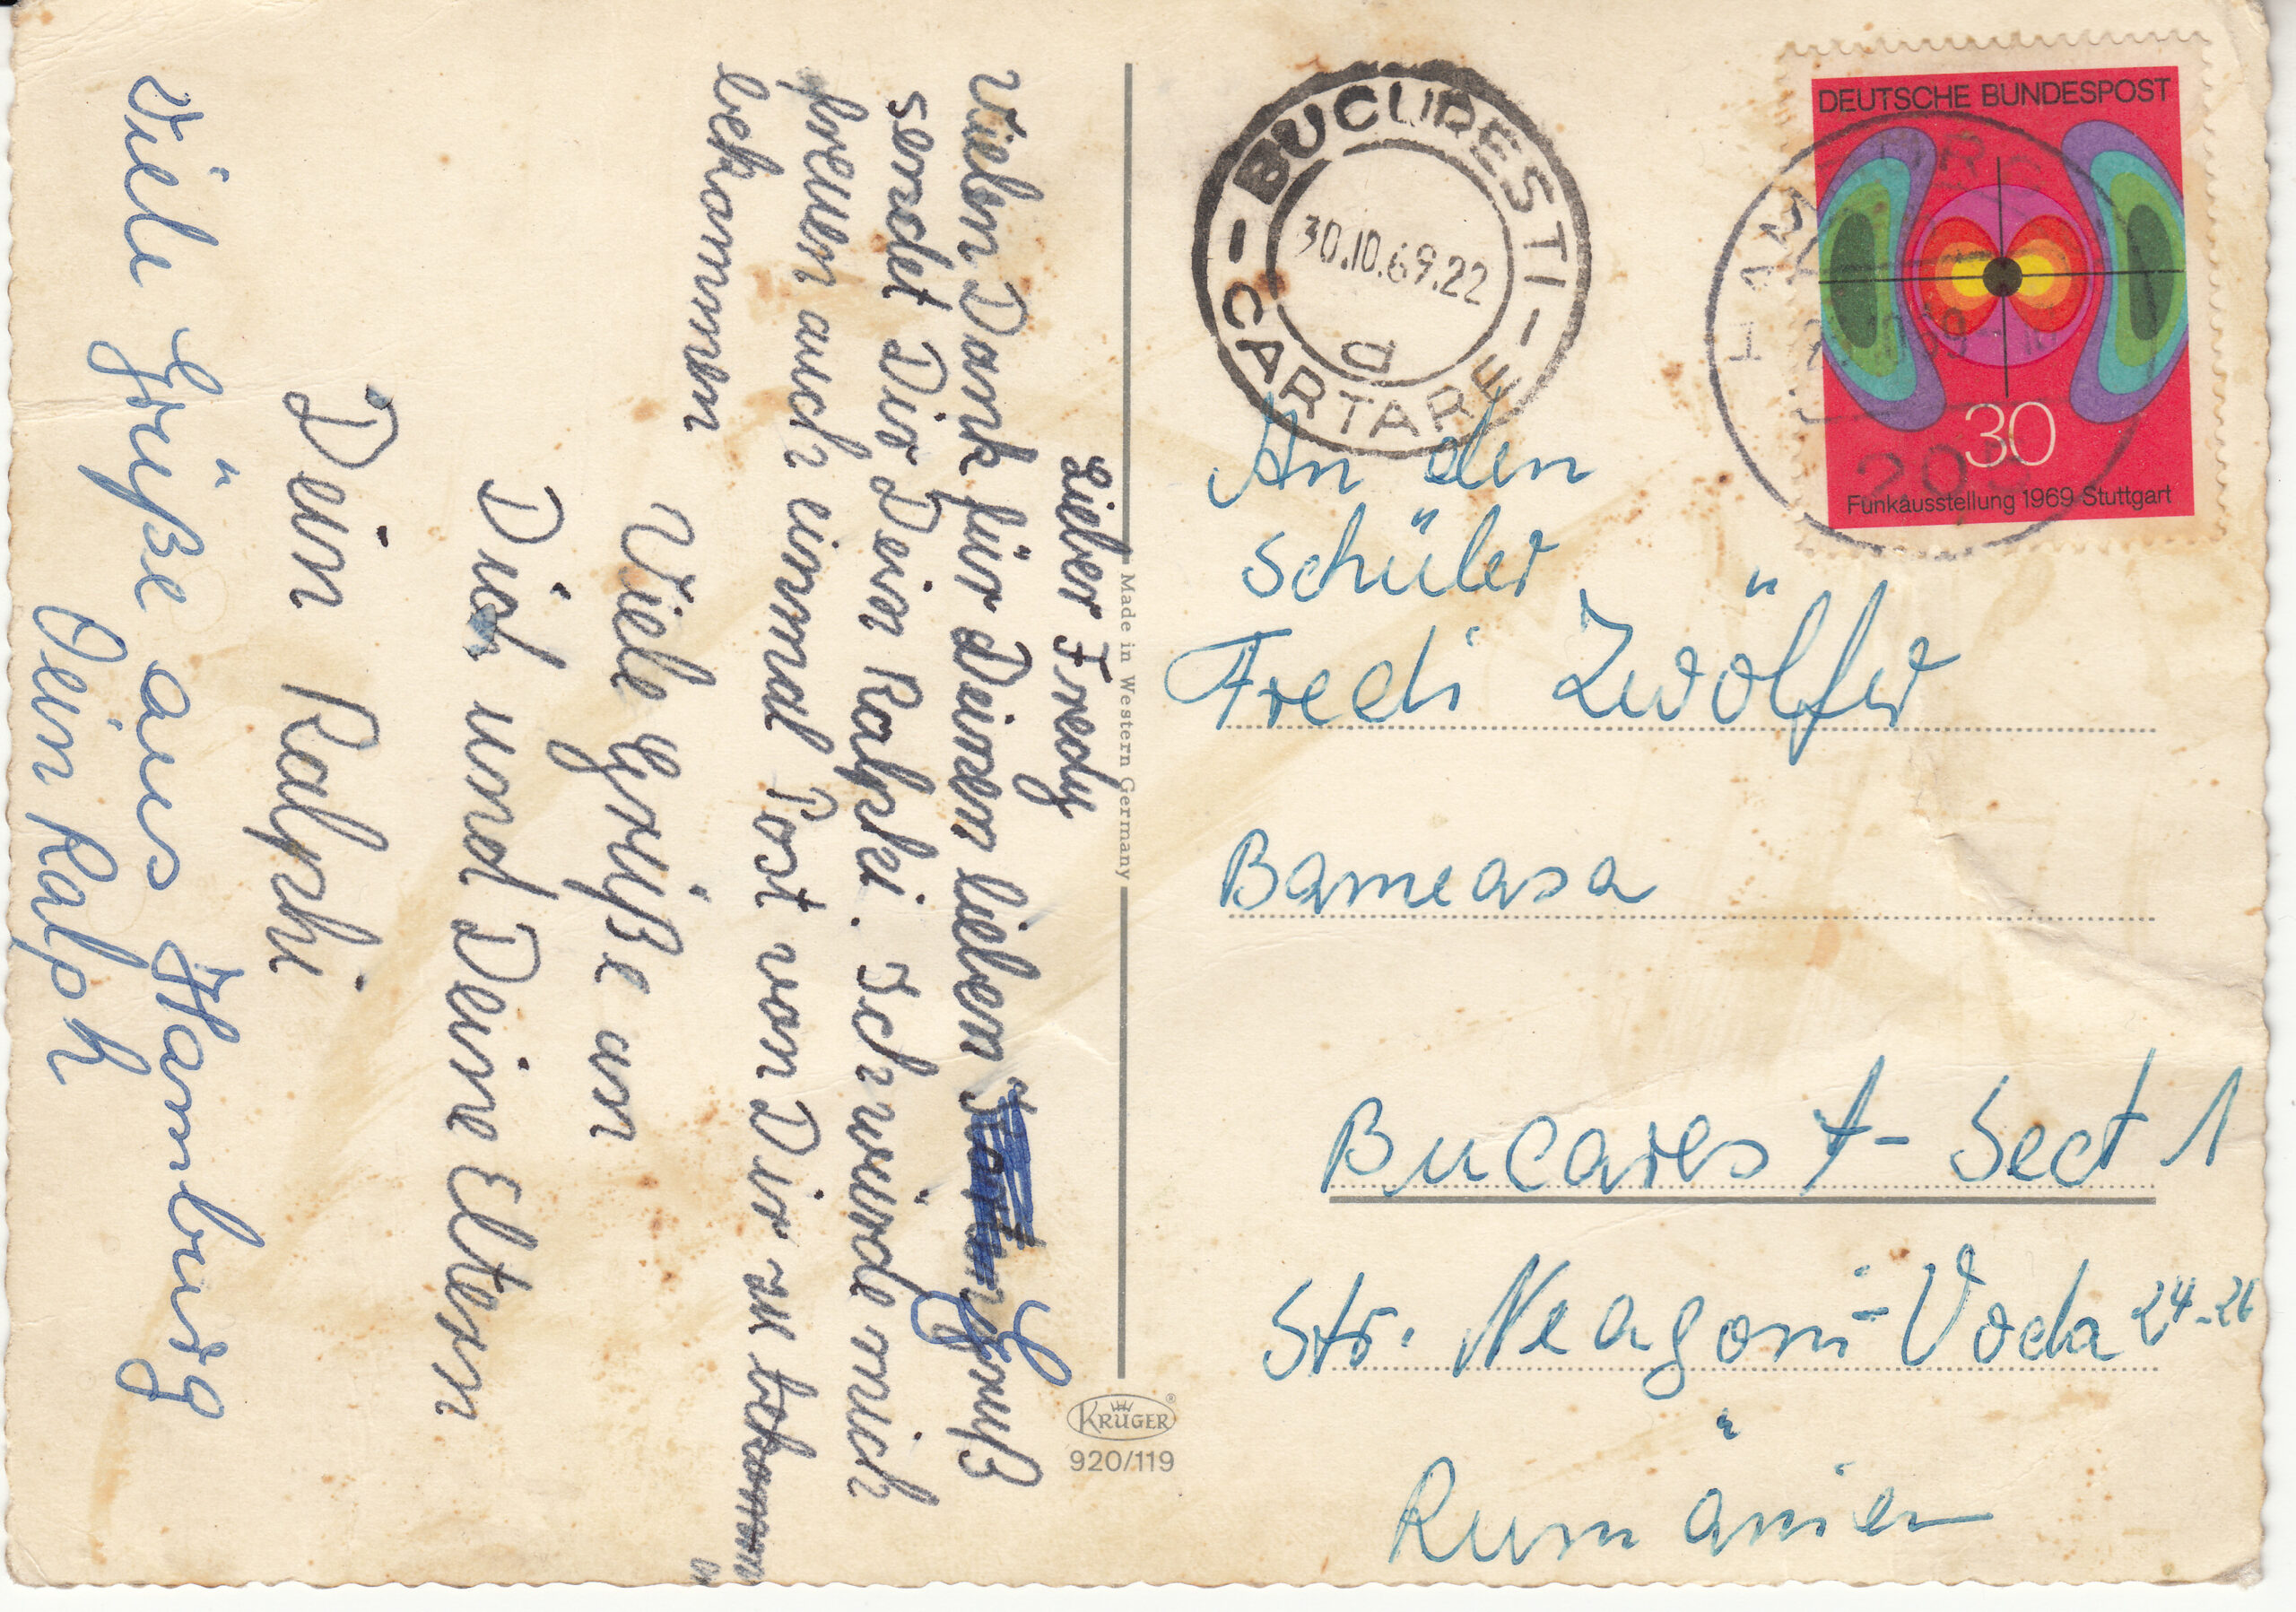 Lieber Fredy
Vielen Dank für Deinen lieben Gruß
sendet Dir Dein Ralphi. Ich würde mich
freuen auch einmal Post von Dir zu bekommen
bekommen
Viele Grüße an
Dich und Deine Eltern
Dein Ralphi
Viele Grüße aus Hamburg
Dein Ralph
Made in Western Germany
KRÜGER
920/119
BUCURESTI
30.10.69.22
d
CARTARE
DEUTSCHE BUNDESPOST
30
Funkausstellung 1969 Stuttgart
An den
Schüler
Fredi Zwölfer
Bameasa
Bucarest - Sect 1
Str. Neagoni-Voda 24-26
Rumänien